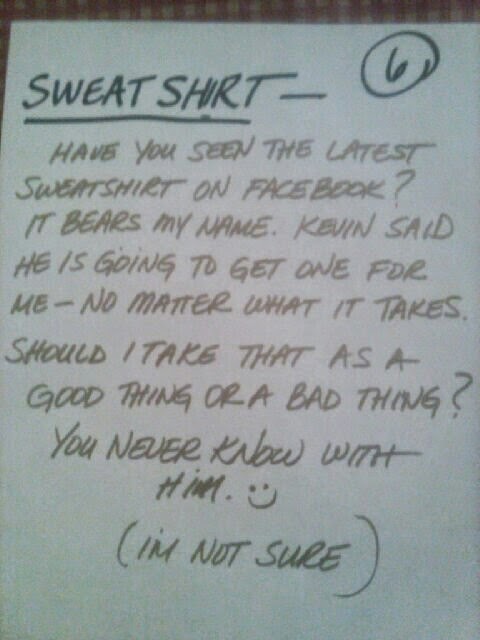 6
SWEATSHIRT —
HAVE YOU SEEN THE LATEST
SWEATSHIRT ON FACEBOOK?
IT BEARS MY NAME. KEVIN SAID
HE IS GOING TO GET ONE FOR
ME — NO MATTER WHAT IT TAKES.
SHOULD I TAKE THAT AS A
GOOD THING OR A BAD THING?
YOU NEVER KNOW WITH
HIM. :)
(IM NOT SURE)